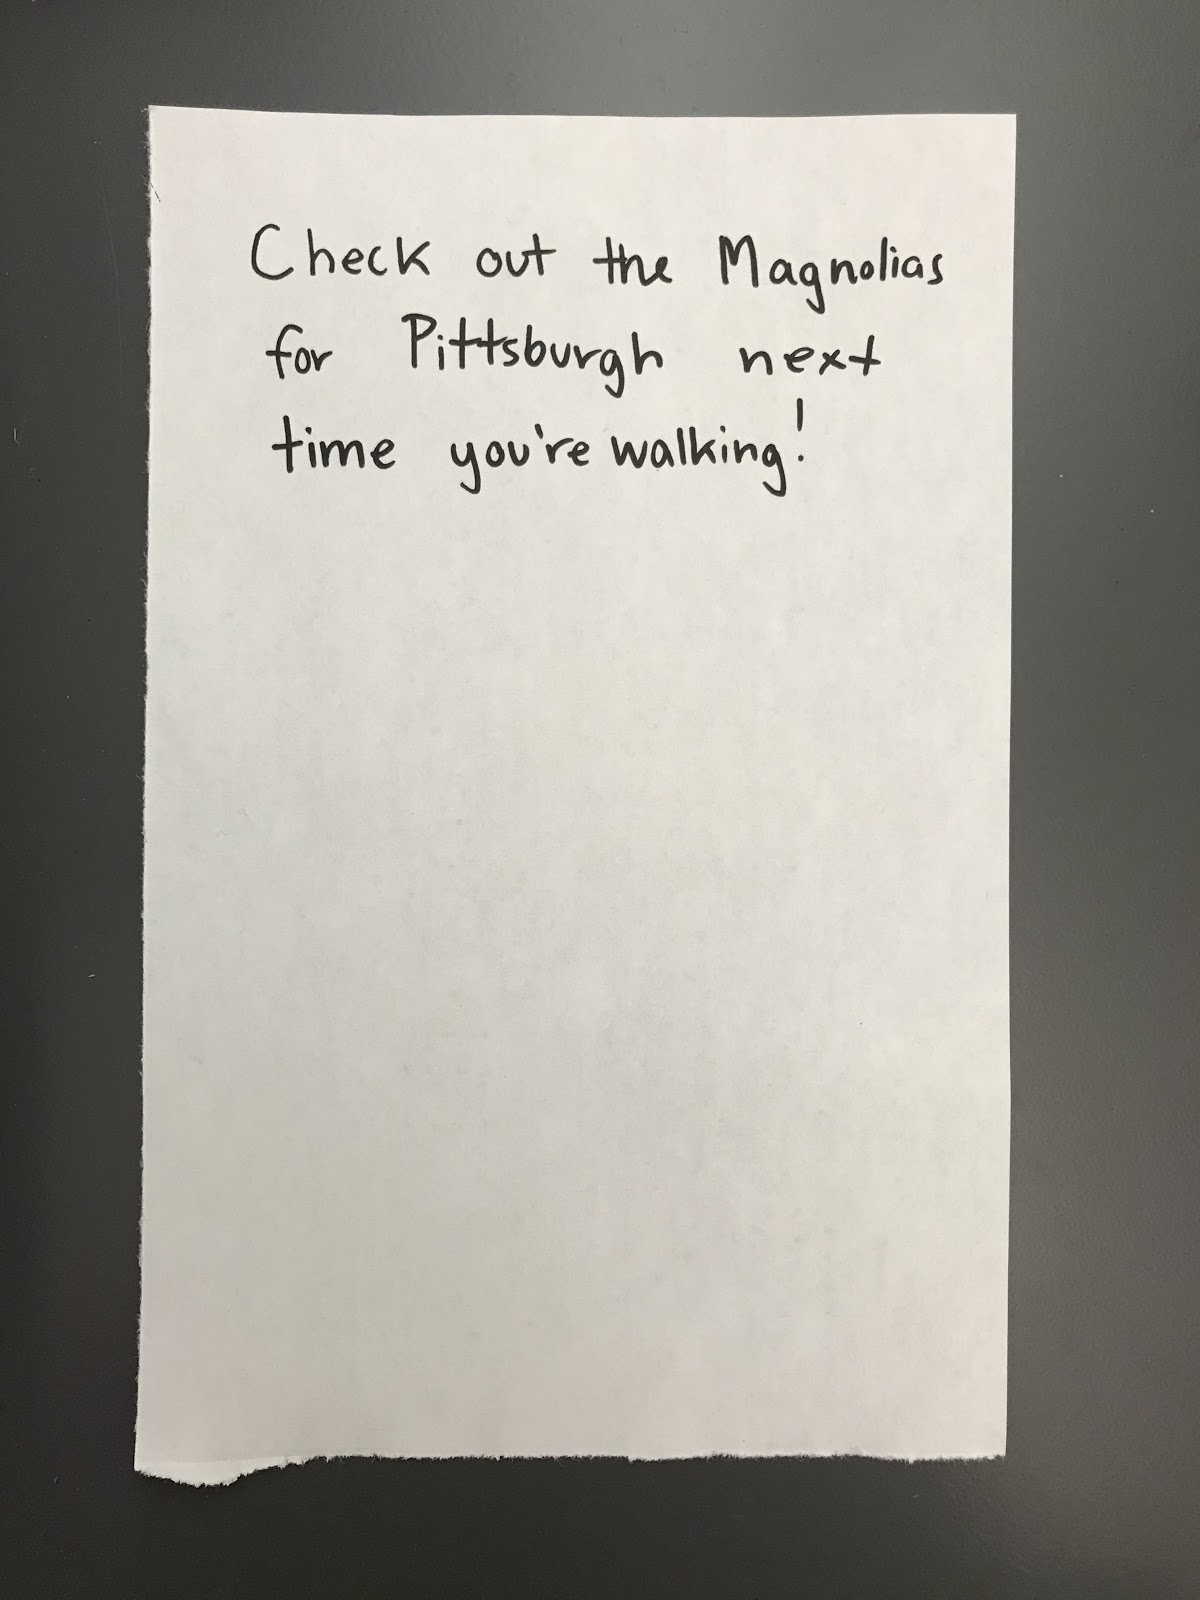 Check out the Magnolias
for Pittsburgh next
time you're walking!